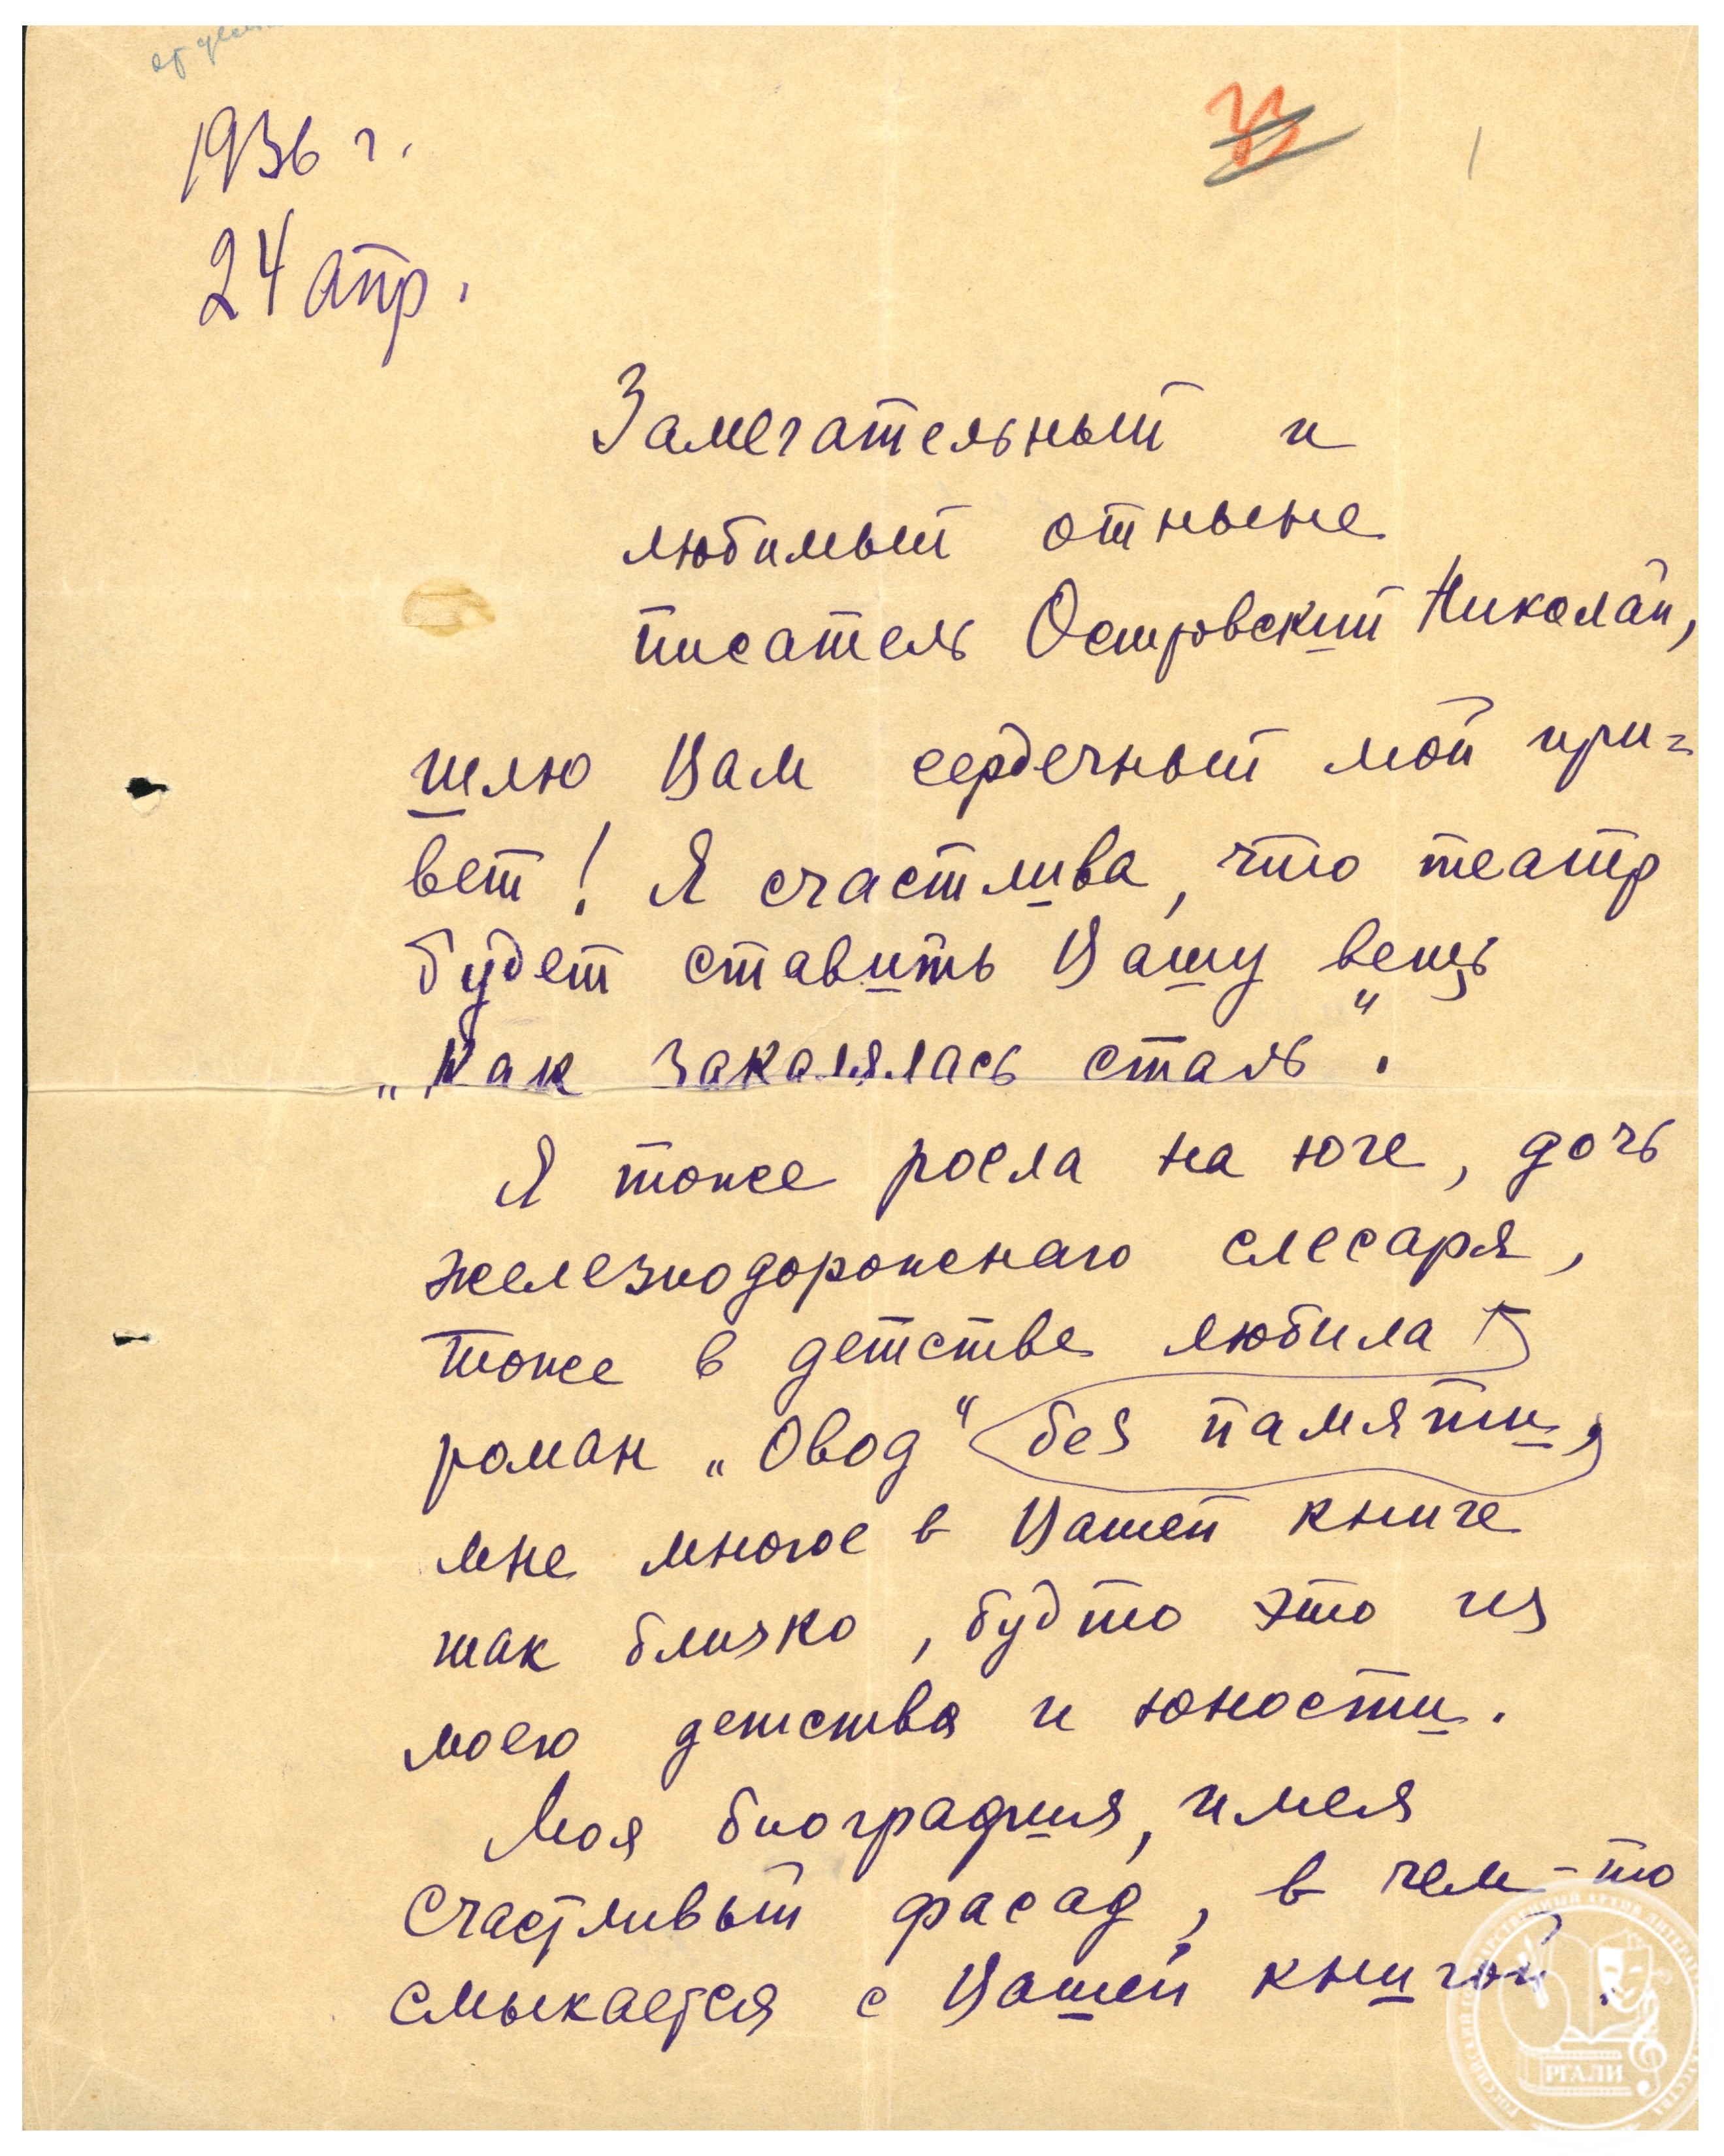 1936 г.
33
1
24 апр.
Замечательный и
любимый отныне
писатель Островский Николай,
шлю Вам сердечный мой при=
вет! Я счастлива, что театр
будет ставить Вашу вещь
„Как закалялась сталь".
Я тоже росла на юге, дочь
железнодорожнаго слесаря,
тоже в детстве любила
роман „Овод" без памяти,
мне многое в Вашей книге
так близко, будто это из
моего детства и юности.
Моя биография, имея
счастливый фасад, в чем-то
смыкается с Вашей книгой.
РГАЛИ